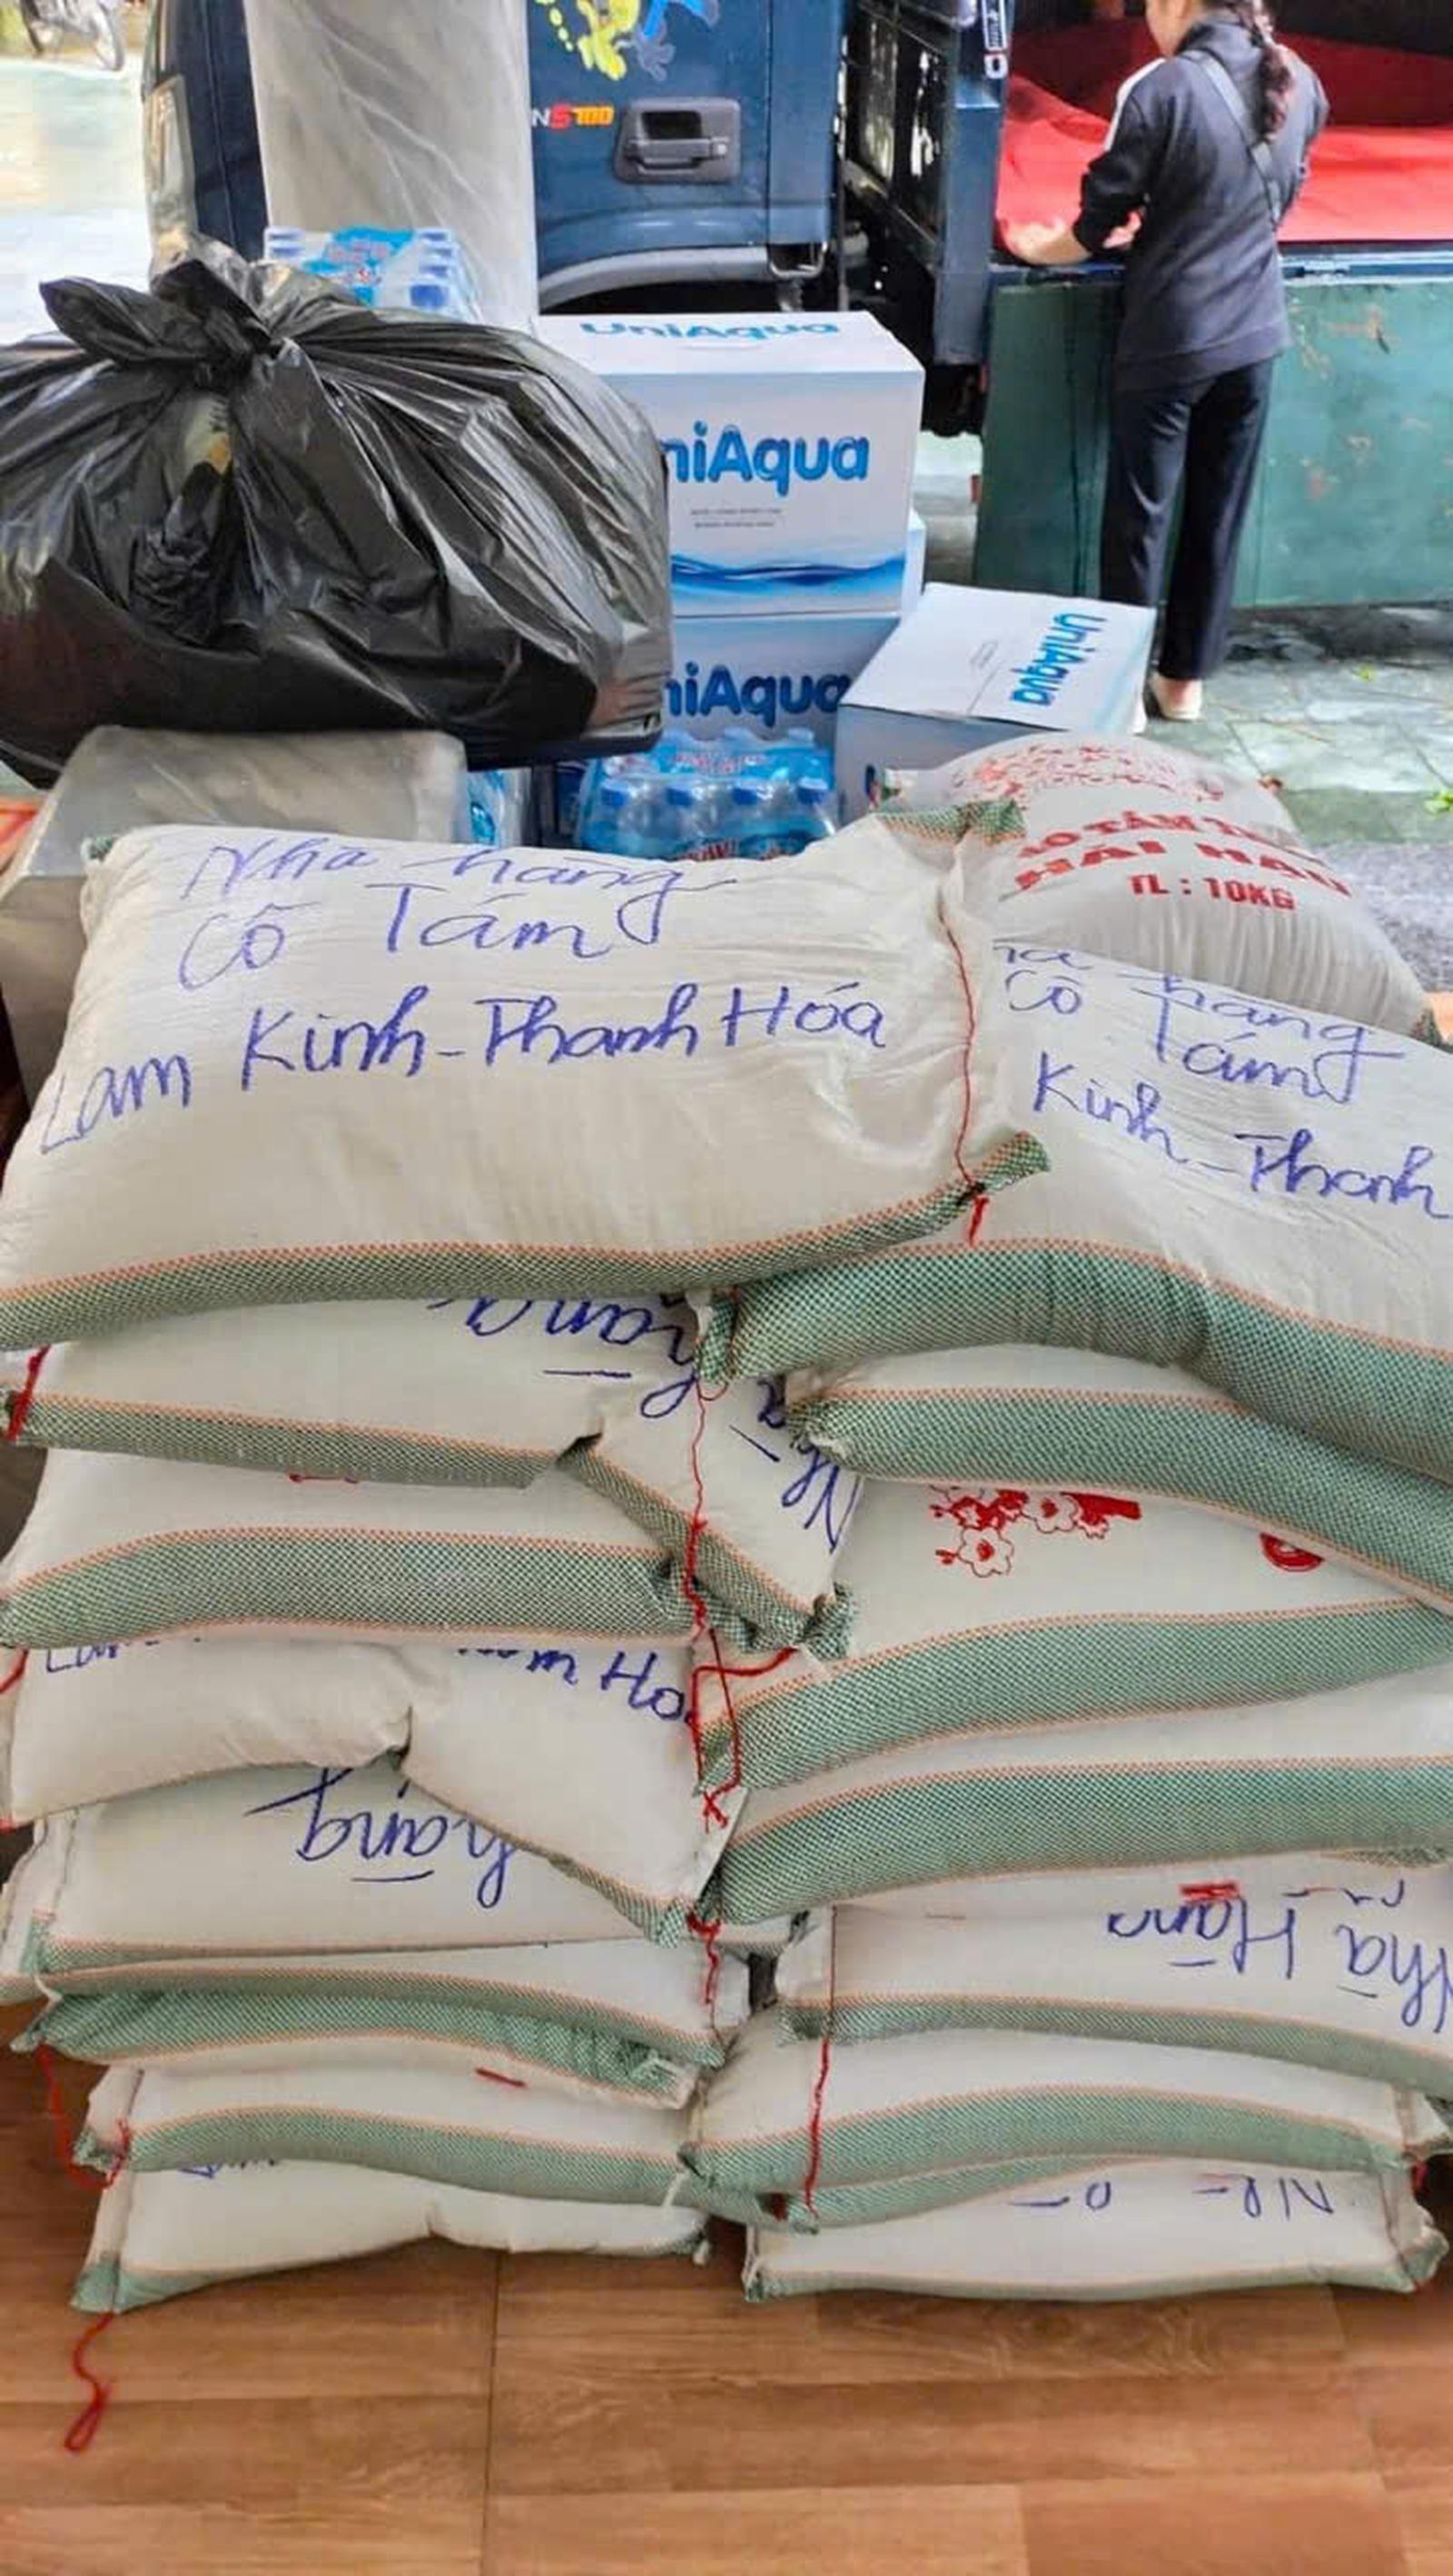 NS700
UniAqua
niAqua
UniAqua
niAqua
HẢI HẬU
TL : 10KG
Nhà hàng
Cô Tám
Lam Kinh - Thanh Hóa
hàng
Cô Tám
Kinh - Thanh
hàng
Nhà
hàng
Nhà Hàng